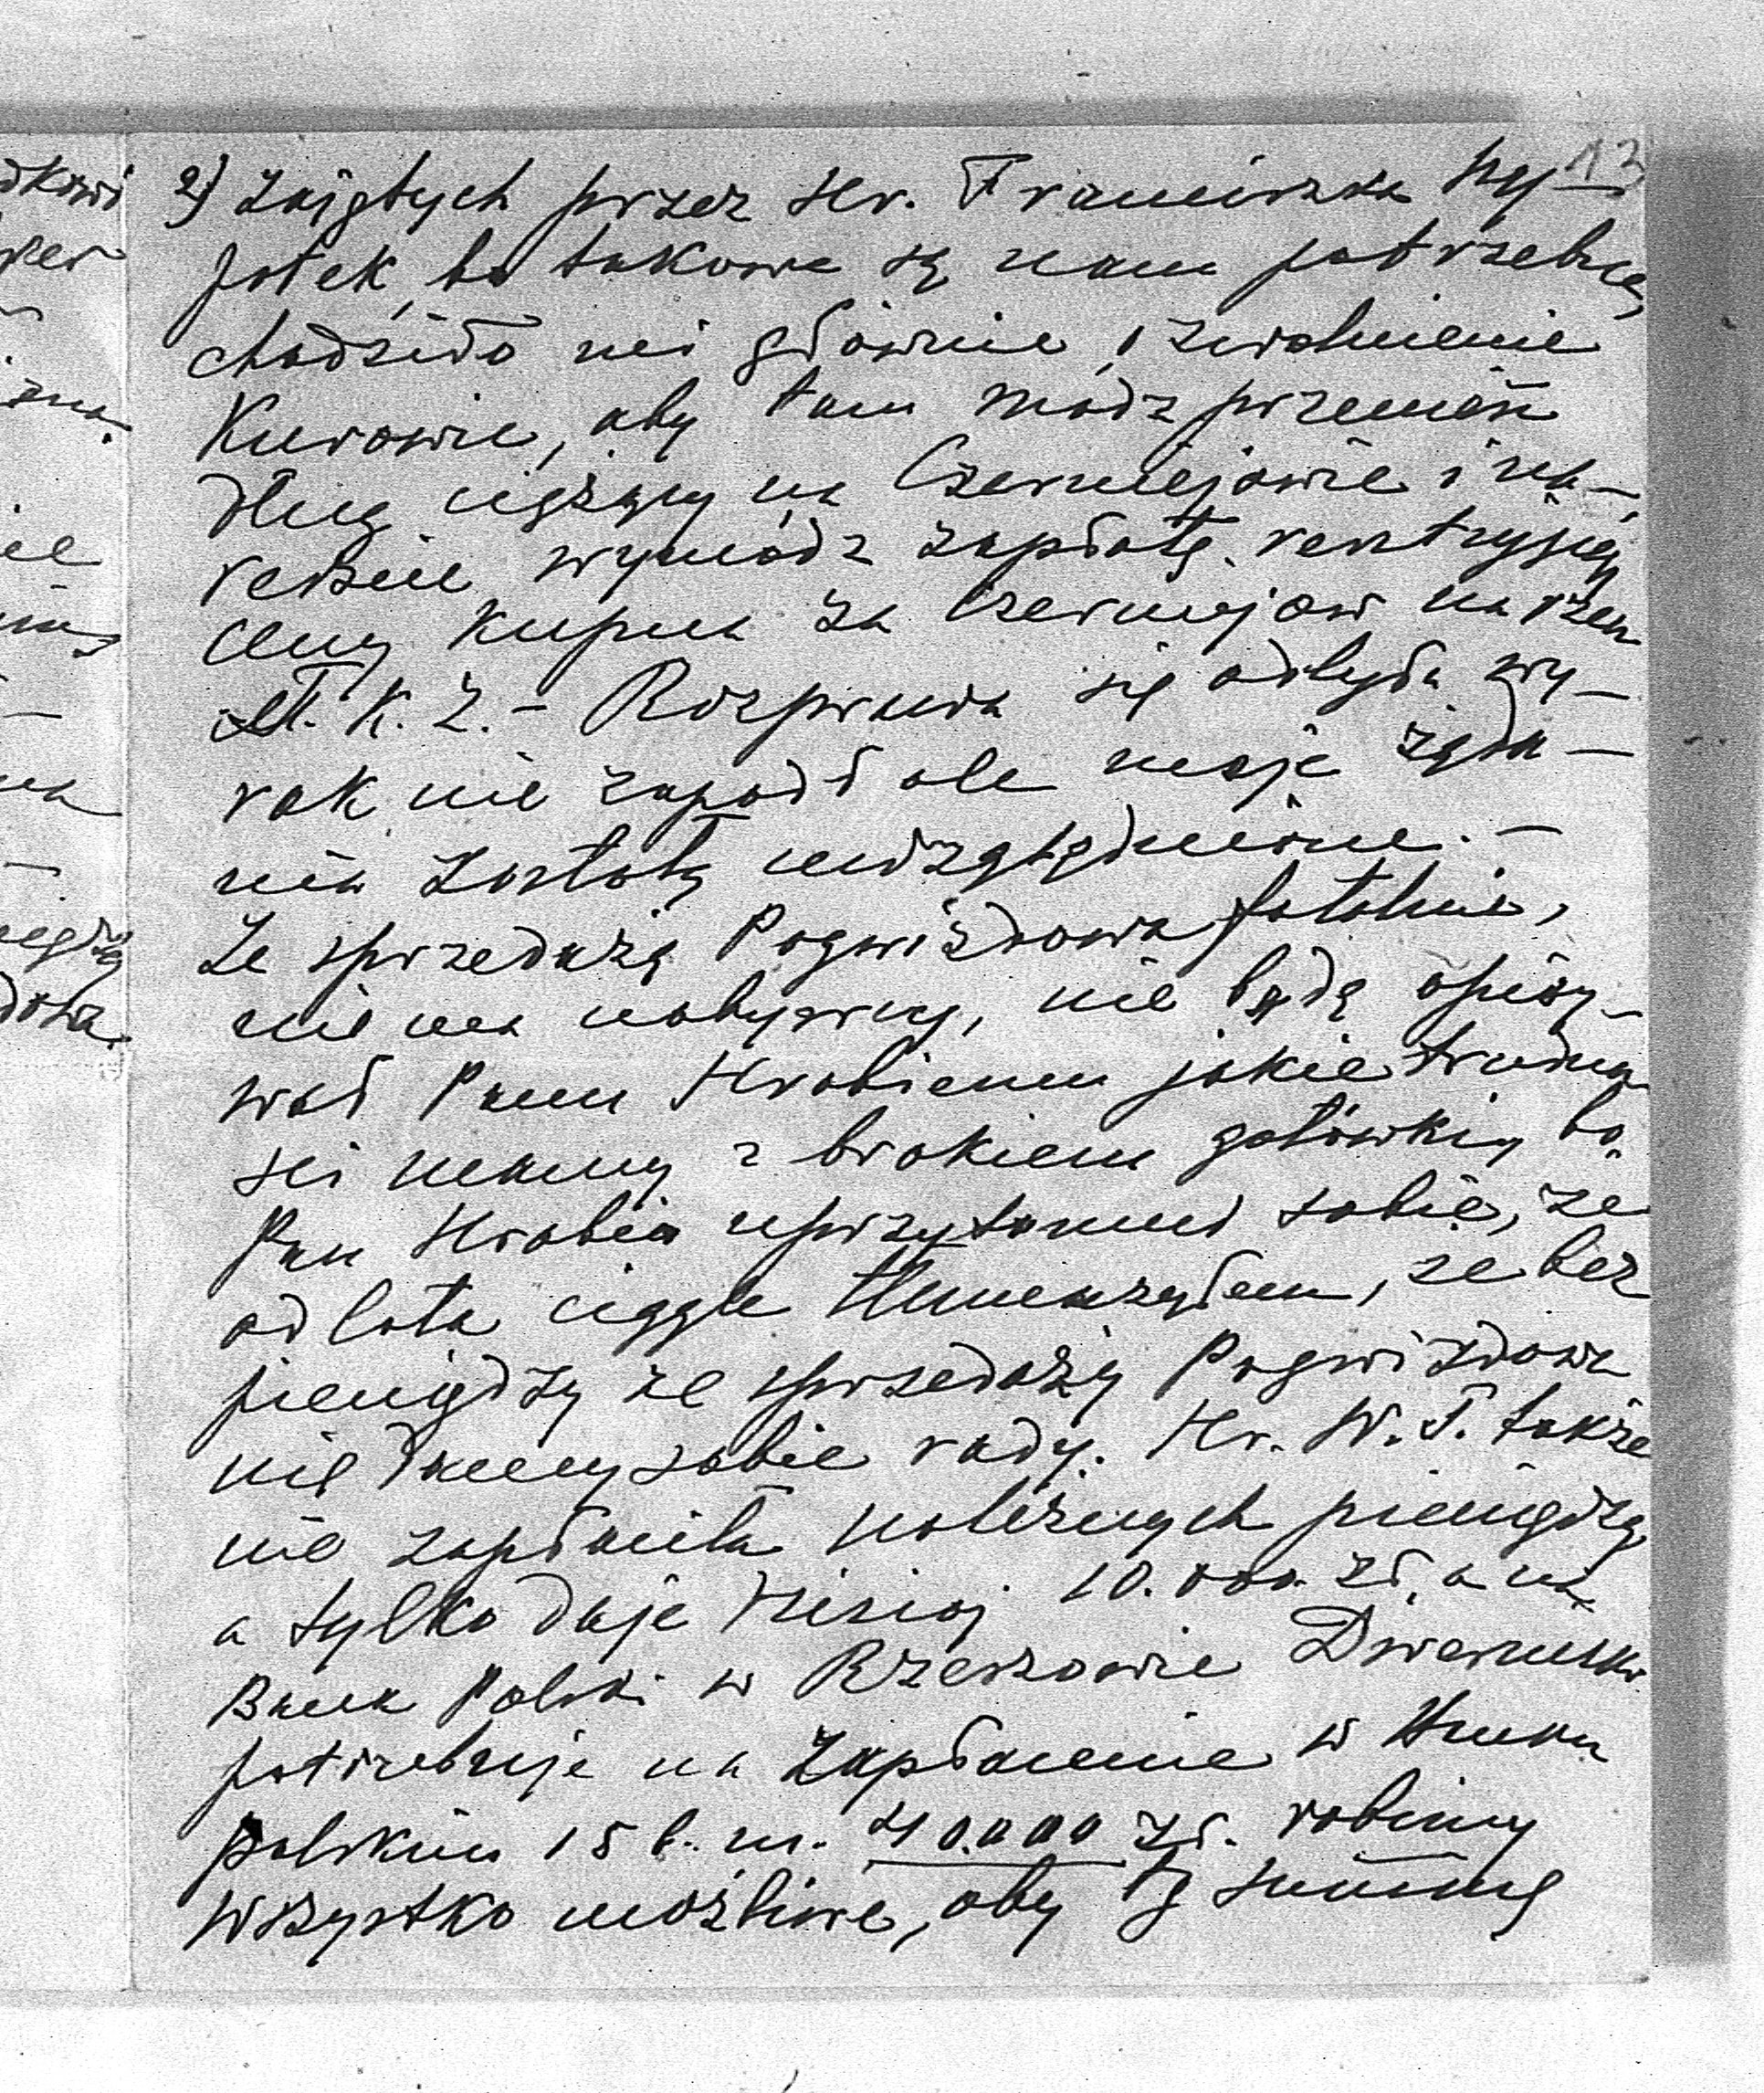 13
2) zajętych przez Hr. Franciszka hy-
potek, bo takowe są nam potrzebne,
chodziło mi głównie o zwolnienie
Kurowie, aby tam módz przenieść
dług ciężący na Czerniejowie i na-
reszcie wymódz zapłatę resztującej
ceny kupna za Czerniejów na rzecz
M. K. Z. - Rozprawa się odbyła wy-
rok nie zapadł ale moje żąda-
nia zostały uwzględnione. -
Ze sprzedażą Pogwizdowa fatalnie,
nie ma nabywcy, nie będę opisy-
wał Panu Hrabiemu jakie trudno-
ści mamy z brakiem gotówki, bo
Pan Hrabia uprzytomni sobie, że
od lata ciągle tłumaczyłem, że bez
pieniędzy ze sprzedaży Pogwizdowa
nie damy sobie rady. Hr. W. T. także
nie zapłaciła należnych pieniędzy,
a tylko daje dzisiaj 10.000 zł. a na
Bank Polski w Rzeszowie
potrzebuje na zapłacenie w Banku
polskim 15 b. m. 40.000 zł. robimy
wszystko możliwe, aby tę summę